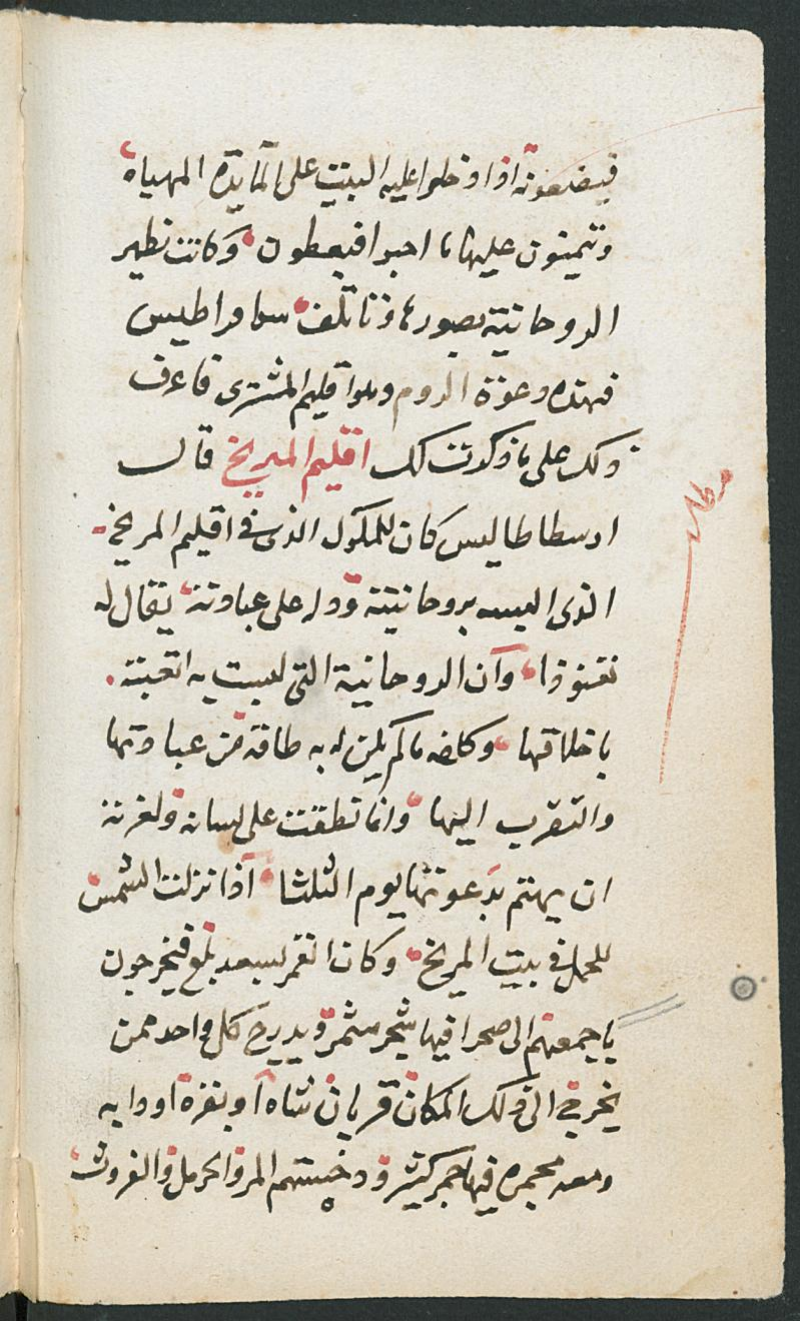 فيضعونه اذا دخلوا عليه البيت على المايدة المهياه
ويتمنون عليها ما احبوا فيعطون وكانت تظهر
الروحانية بصورها
فهذه دعوة الروم وهو اقليم المشترى فاعرف
ذلك على ما ذكرت لك اقليم المريخ قال
ارسطاطاليس كان للملوك الذى فى اقليم المريخ
الذى البسه بروحانيته ودله على عبادته يقال له
وان الروحانية التى لبست به اتعبته
باخلاقها وكلفه ما لم يكن له به طاقة من عبادتها
والتقرب اليها وانما نطقت على لسانه
ان يهتم بدعوتها يوم الثلثا اذا نزلت الشمس
للحمل فى بيت المريخ وكان القمر بسعد بلع فيخرجون
باجمعهم الى صحرا فيها شجر مثمر كل واحد ممن
يخرج الى ذلك المكان قربان شاه او بقرة او دابه
ومعه مجمره فيها جمر كثير ودخنتهم المر والحرمل
مطلب